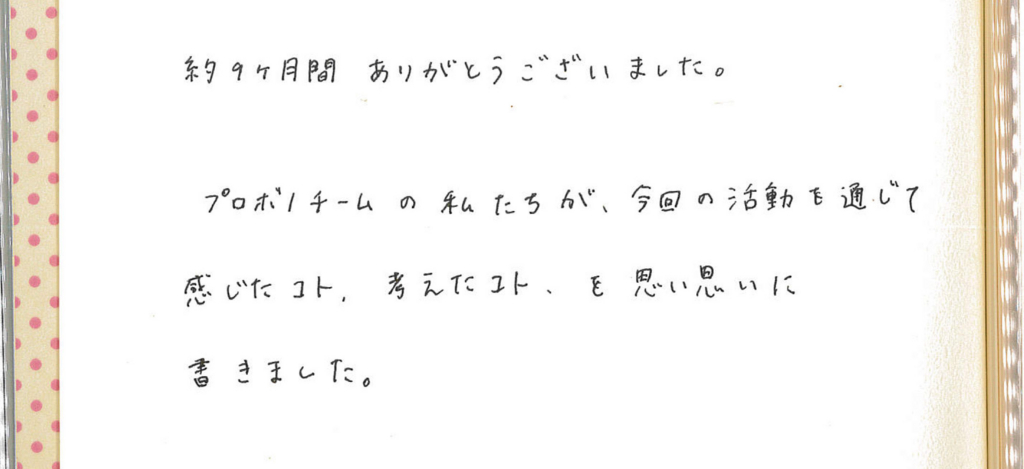 約9ヶ月間 ありがとうございました。
プロボノチームの私たちが、今回の活動を通じて
感じたコト、考えたコト、を思い思いに
書きました。